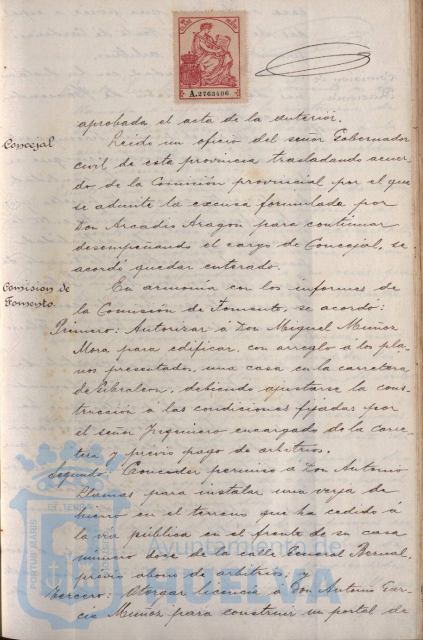 A.2763406
aprobada el acta de la anterior.
Concejal
Leido un oficio del señor Gobernador
civil de esta provincia trasladando acuer-
do de la Comisión provincial por el que
se admite la excusa formulada por
Don Arcadio Aragon para continuar
desempeñando el cargo de Concejal, se
acordó quedar enterado.
Comision de
Fomento.
En armonía con los informes de
la Comisión de Fomento, se acordó:
Primero: Autorizar á Don Miguel Muñoz
Mora para edificar, con arreglo á los pla-
nos presentados, una casa en la carretera
de Gibraleon, debiendo ajustarse la cons-
trucción á las condiciones fijadas por
el señor Ingeniero encargado de la carre-
tera y previo pago de arbitrios.
Segundo: Conceder permiso á Don Antonio
para instalar una verja de
hierro en el terreno que ha cedido á
la via pública en el frente de su casa
número doce de la calle Bernal,
previo abono de arbitrios; y
tercero: Otorgar licencia á Don Antonio Gar-
cia Muñoz para construir un portal de
PORTUS MARIS
ET TERRÆ
Ayuntamiento de
HUELVA